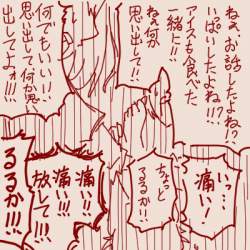 ねぇ、お話ししたよね!?
いっぱいしたよね!!?
アイスも食べた
一緒に!!
ねぇ何か
思い出して!!
何でもいい!!
思い出して何か思い
出してよォ!!!
いっ…
痛い!
ちょっと
るるか!!
痛い!!
痛い!!
放して!!!
るるか!!!